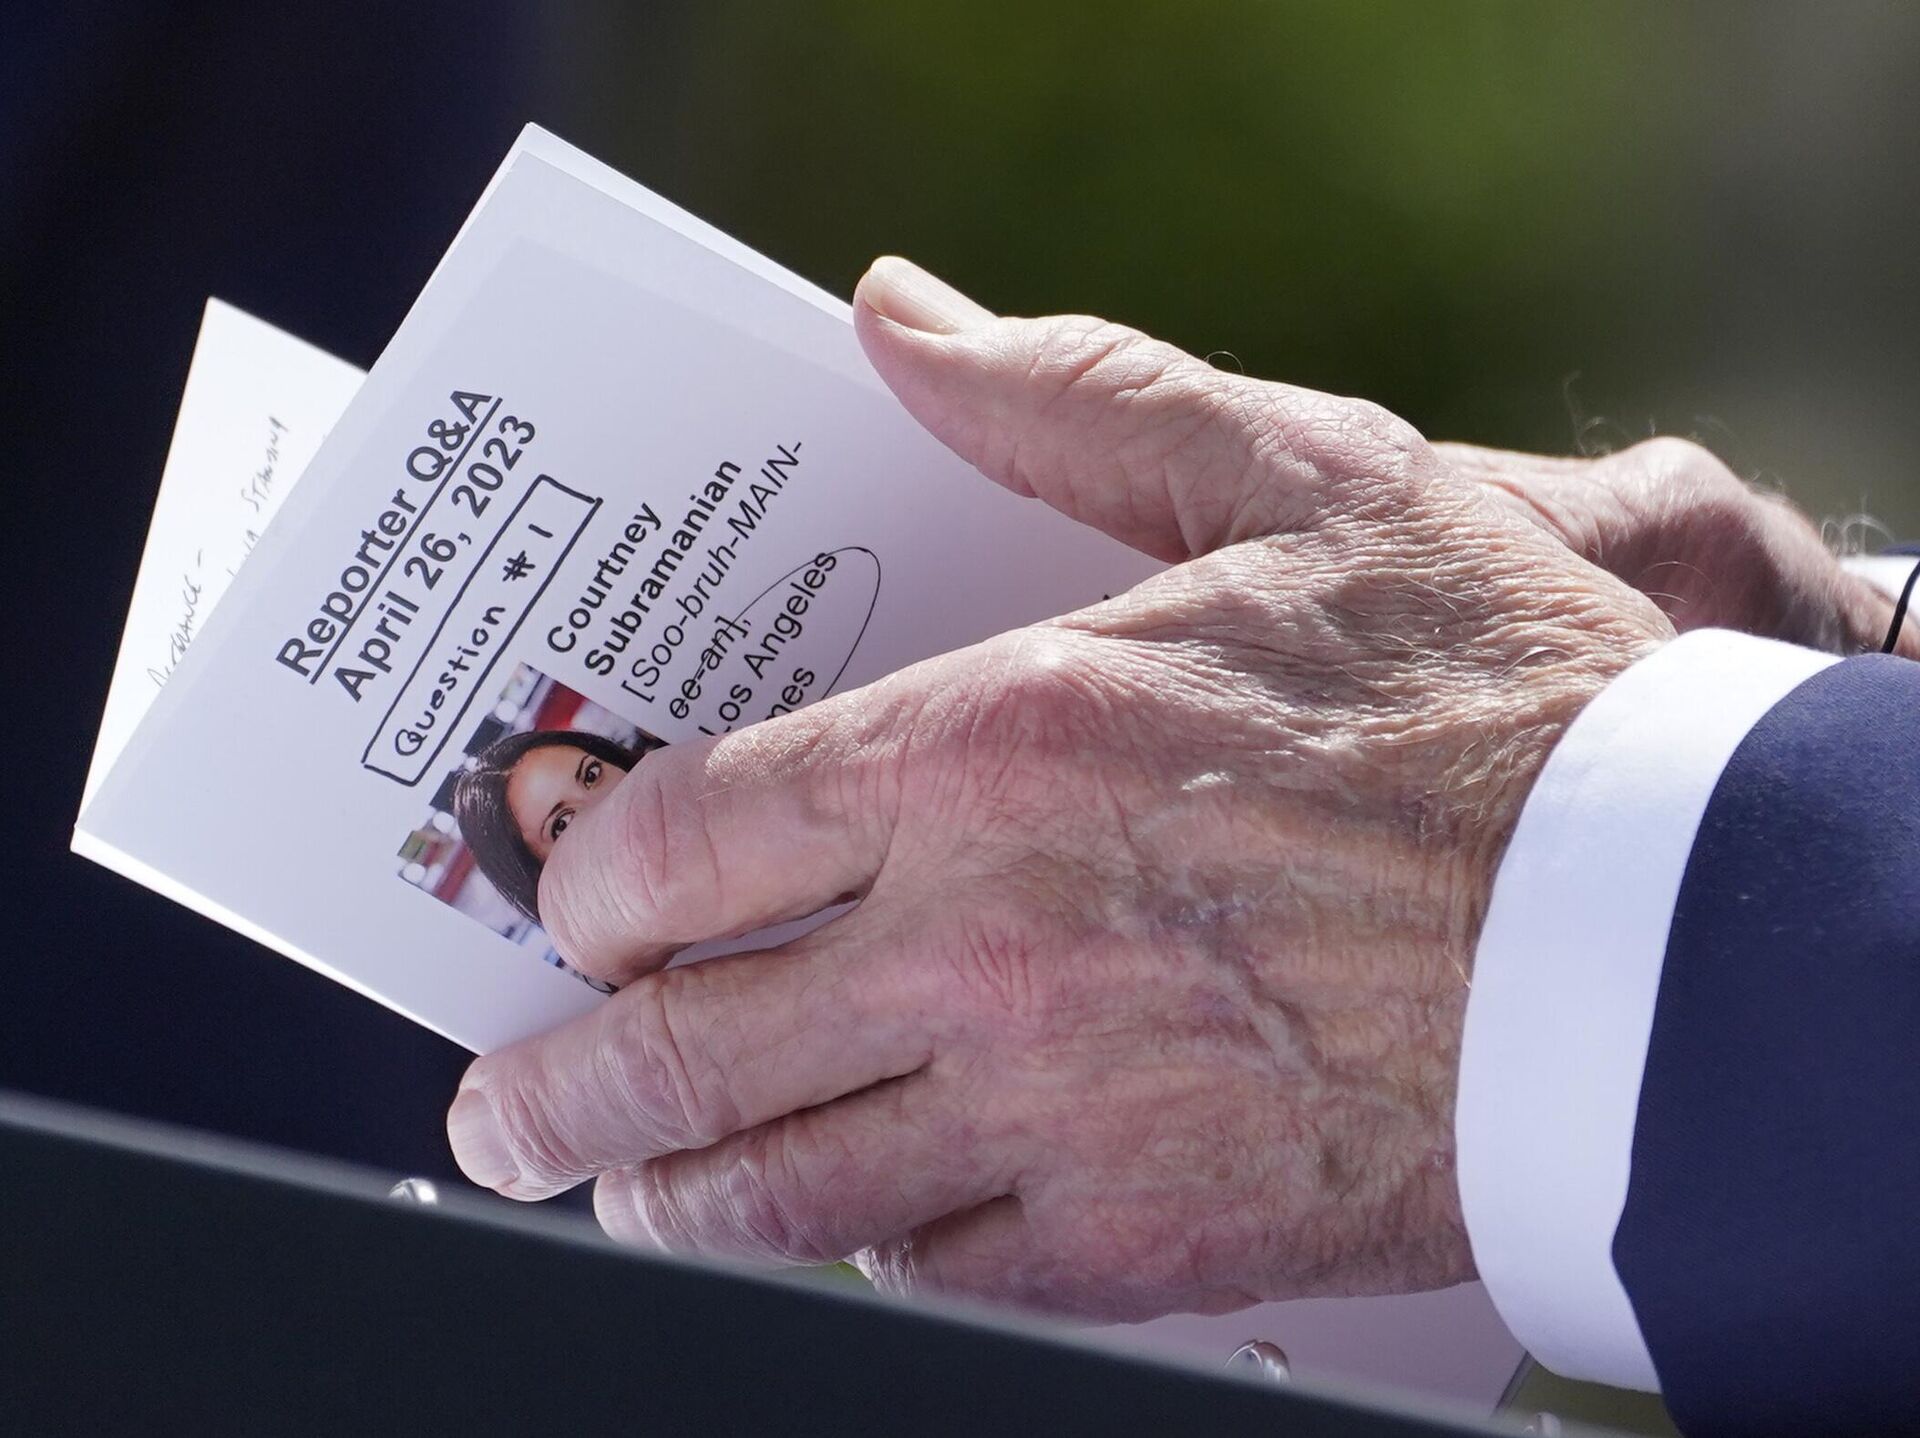 Reporter Q&A
April 26, 2023
Question # 1
Courtney
Subramanian
[Soo-bruh-MAIN-
ee-an],
Los Angeles
mes